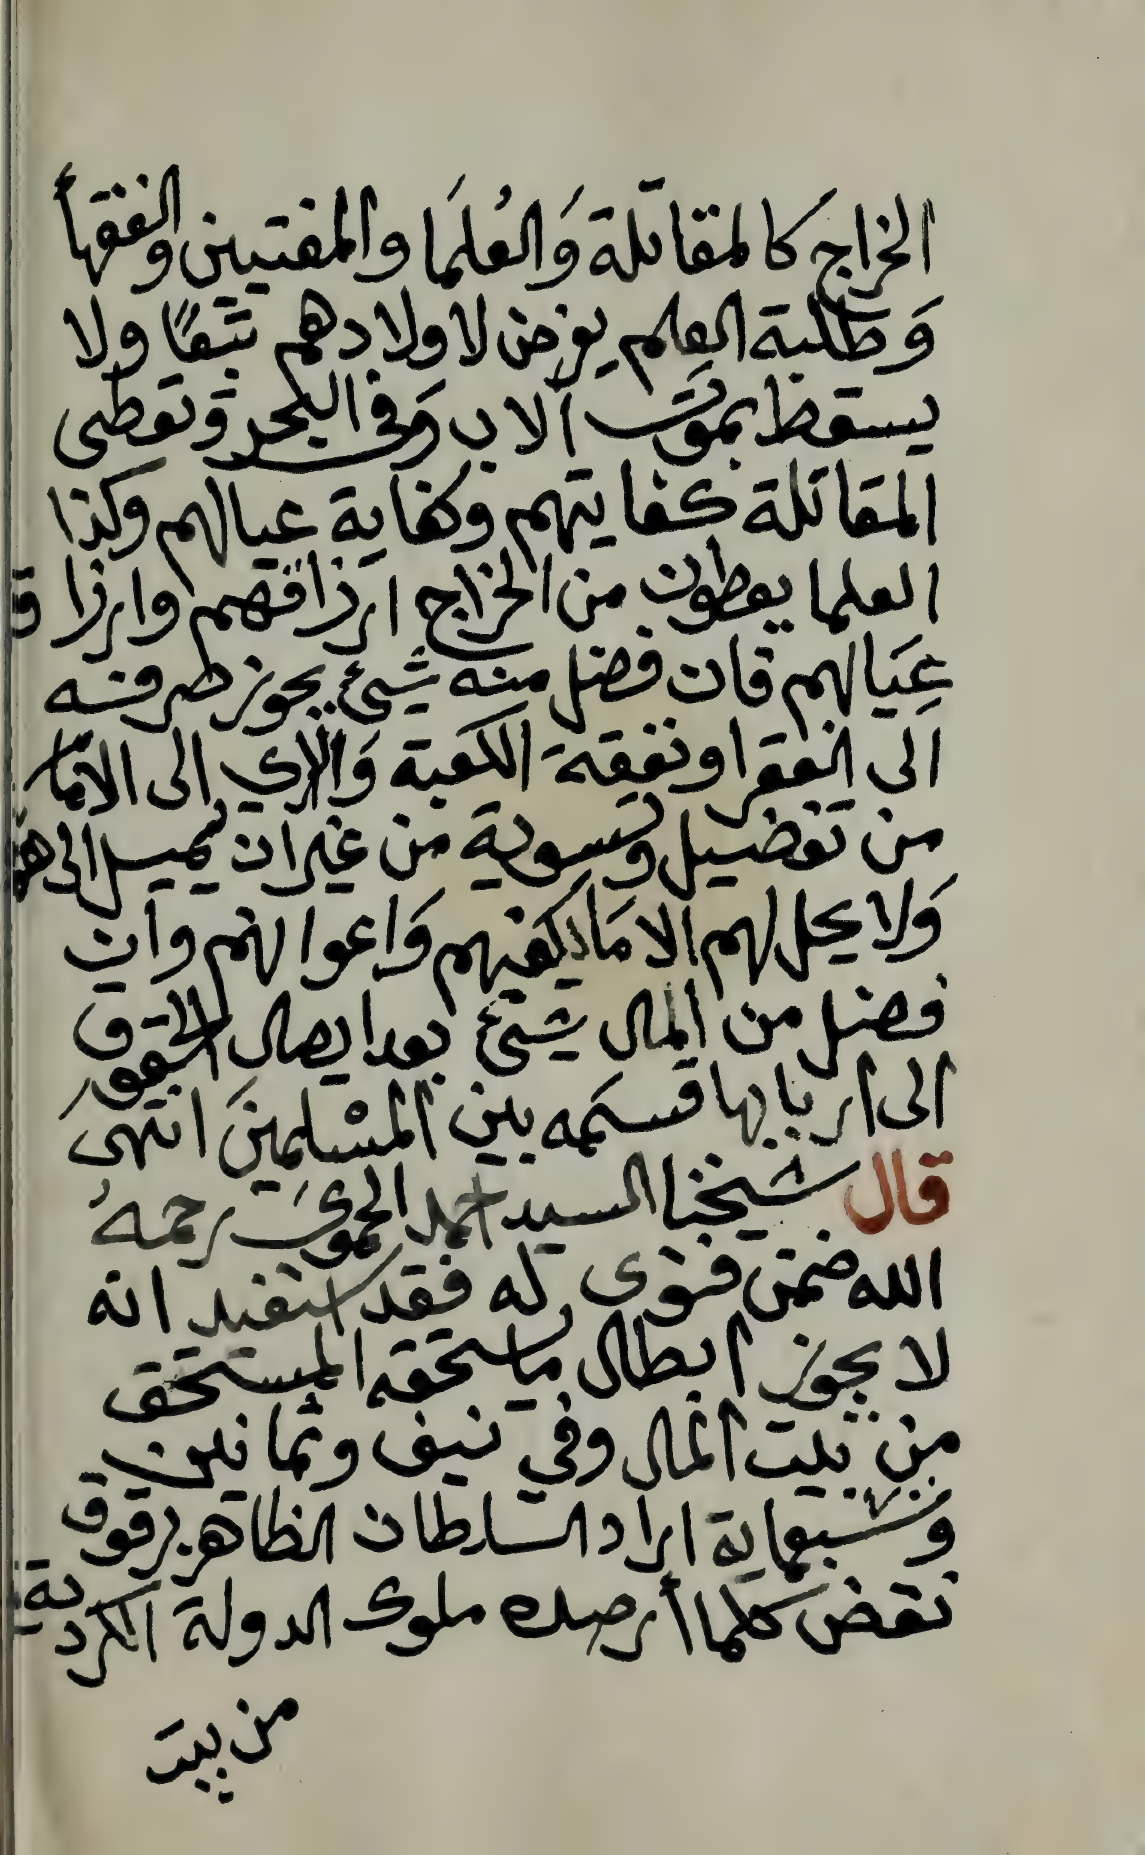 الخراج كالمقاتلة وَالعُلمَا والمفتيين والفقهاء
وَطلبة العِلم يفرض لاولادهم تبَعًا ولا
يسقط بموت الاب وَفى البحر وَتعطى
المقاتلة كفايتهم وكفاية عيالهم وكذا
العلما يعطون من الخراج ارزاقهم وارزاق
عِيَالهم فان فضل منه شيئ يجوز صرفه
الى الفقرا ونفقة الكعبة وَالراي الى الامام
من تفضيل وتسوية من غير ان يميل الى هوى
وَلا يحل لهم الا مَا يكفيهم وَاعوانهم وان
فضل من المال شيئ بعد ايصال الحقوق
الى اربابها قسمه بين المسْلمينَ انتهى
قال شيخنا السيد احمد الحموى رحمهُ
الله ضمن فتوى له فقد استفيد انه
لا يجوز ابطال ما يستحقه المستحق
من بيت المال وفي نيف وثمانين
وَسبعماية اراد السلطان الظاهر برقوق
نقض كلما أرصده ملوك الدولة الكردية
من بيت